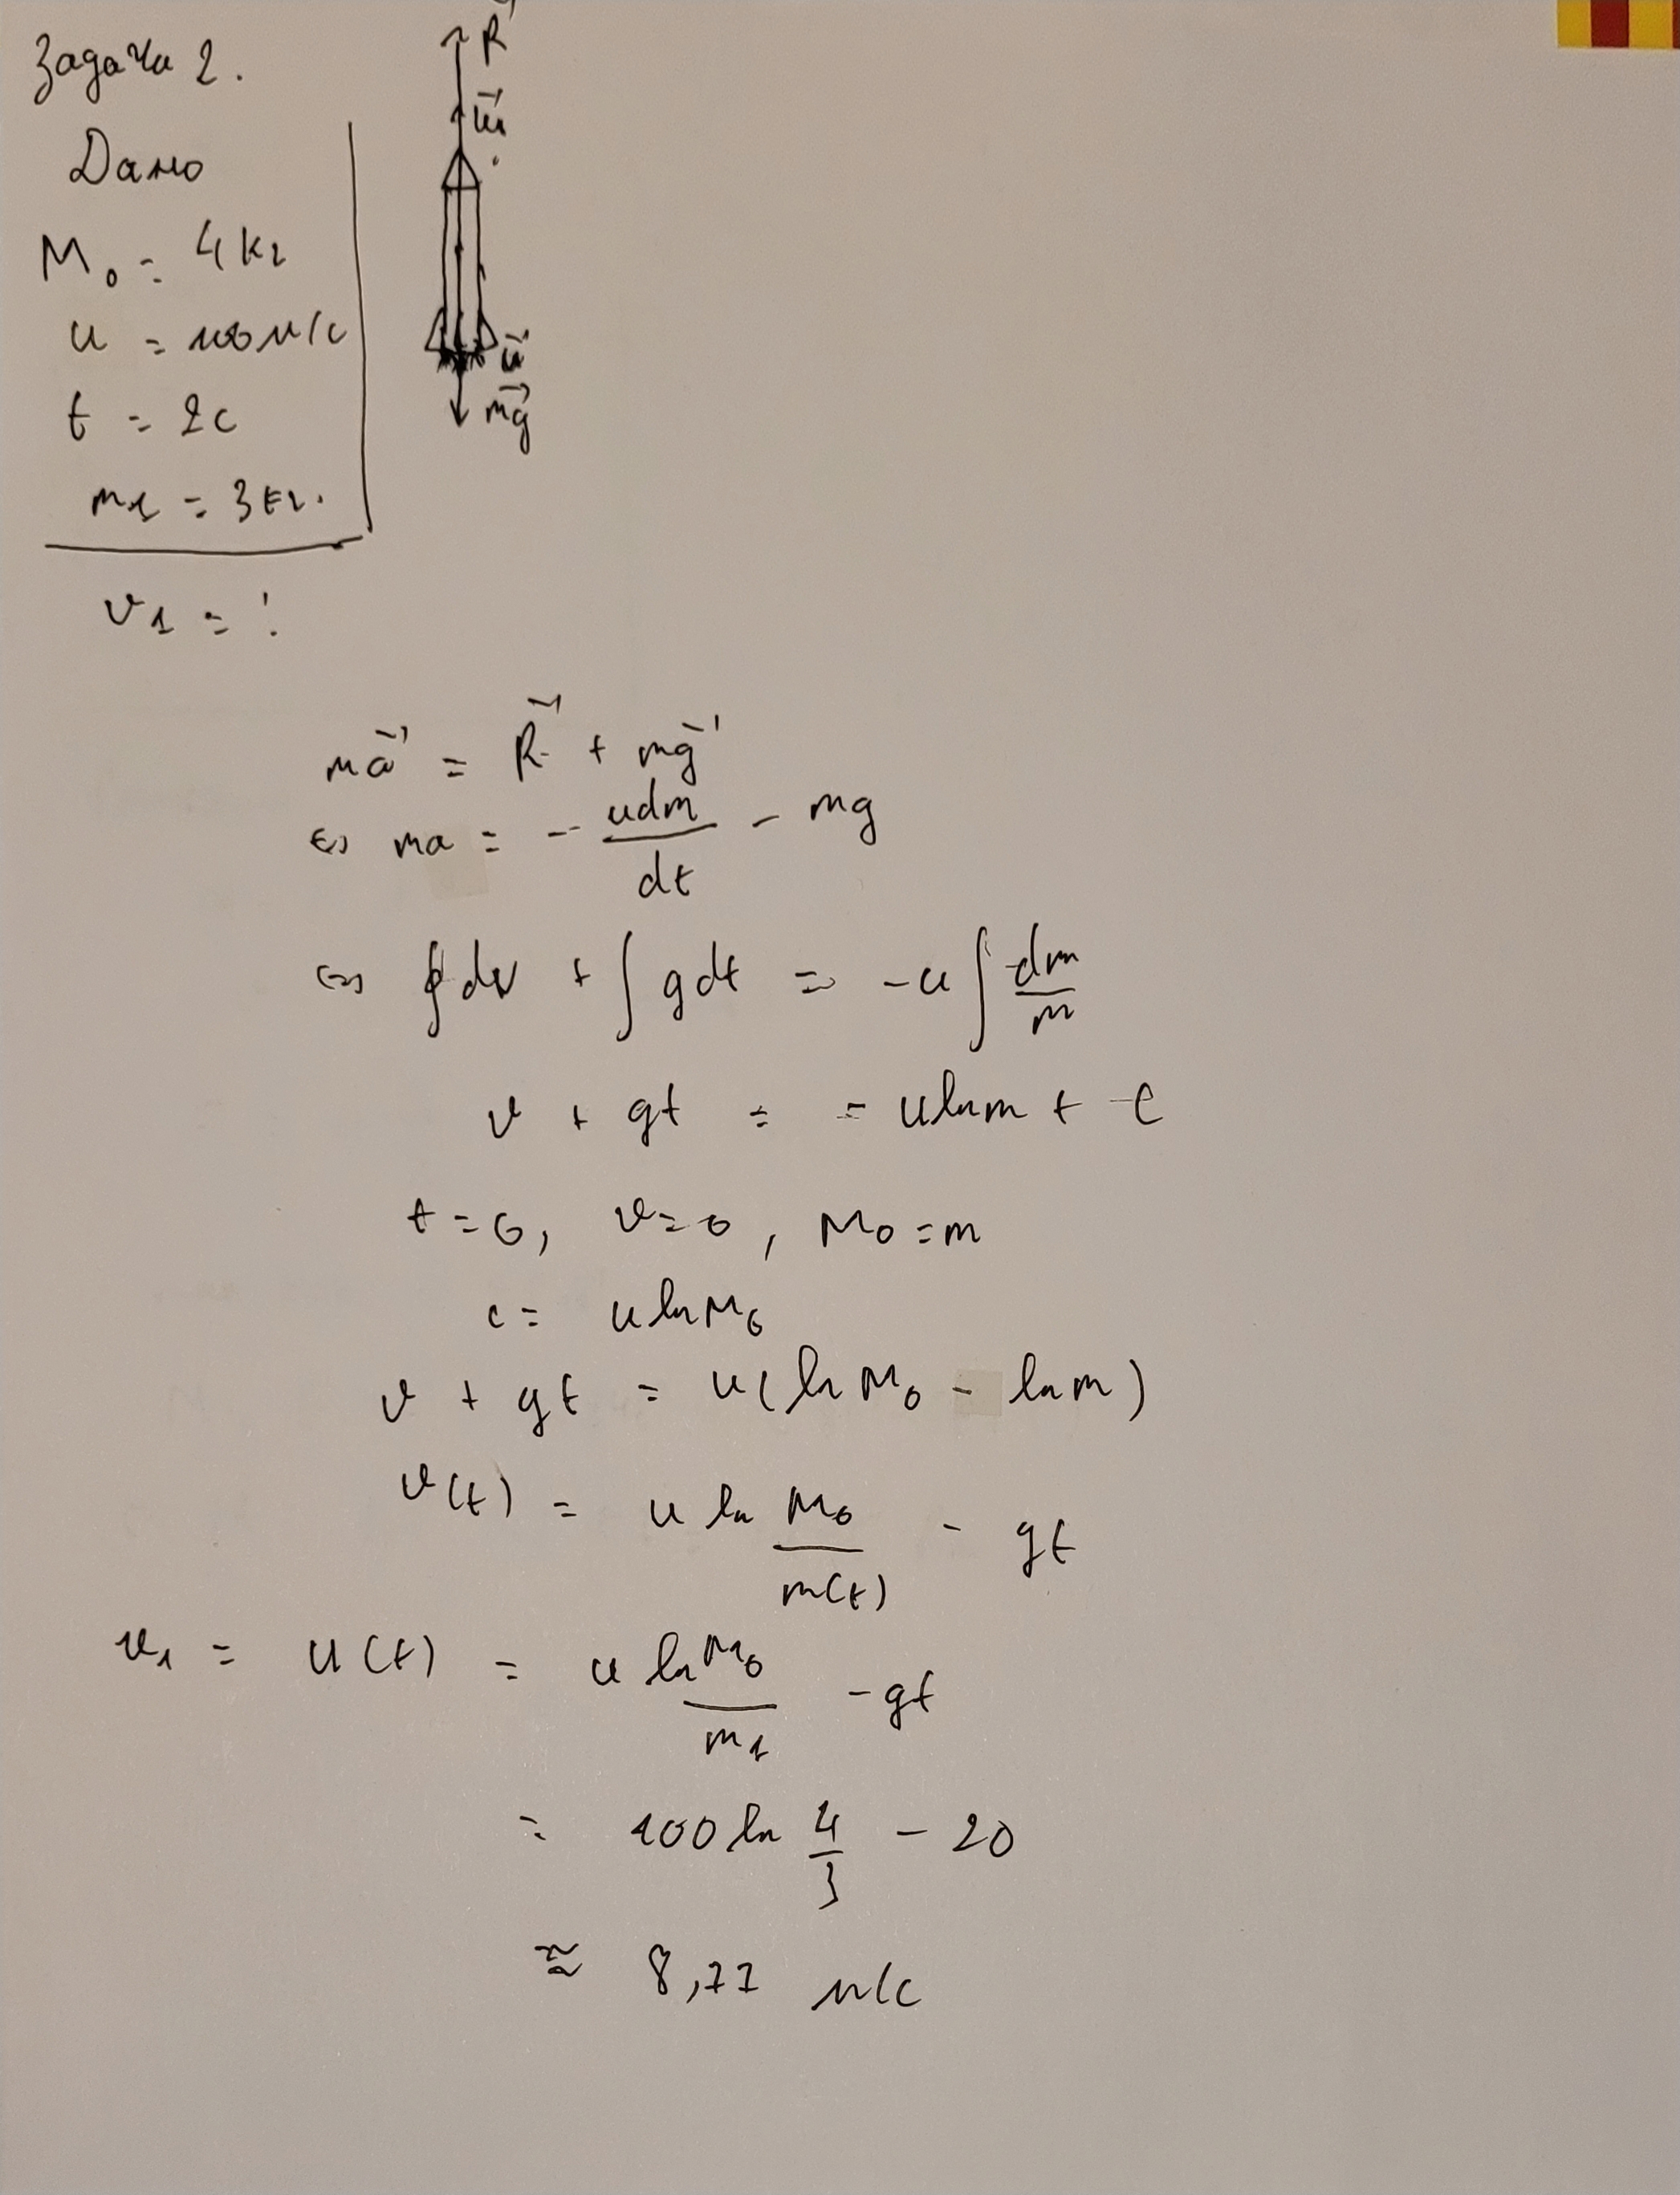 Задача 2.
R⃗
u⃗
Дано
M₀ = 4 кг
u = 100 м/с
u⃗
t = 2 с
mg⃗
m₁ = 3 кг.
v₁ = ?
ma⃗ = R⃗ + mg⃗
⇔ ma = - udm/dt - mg
⇔ ∫dv + ∫gdt = -u ∫dm/m
v + gt = - u ln m + c
t = 0, v = 0, M₀ = m
c = u ln M₀
v + gt = u ( ln M₀ - ln m )
v(t) = u ln M₀/m(t) - gt
v₁ = u(t) = u ln M₀/m₁ - gt
= 100 ln 4/3 - 20
≈ 8,77 м/с